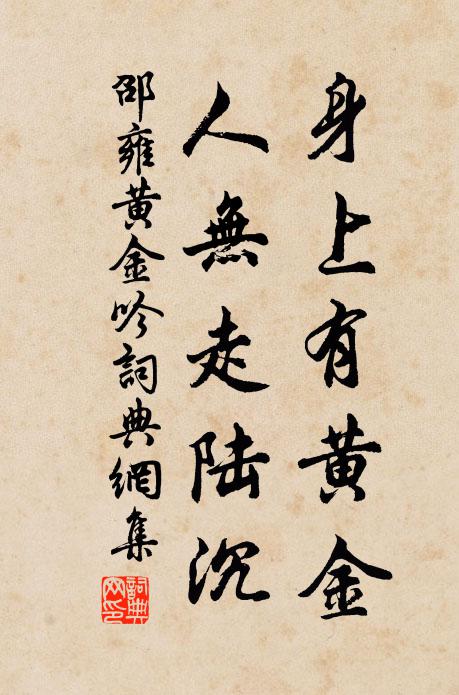 身上有黄金
人無走陆沉
邵雍黄金吟詞典網集
詞典網印